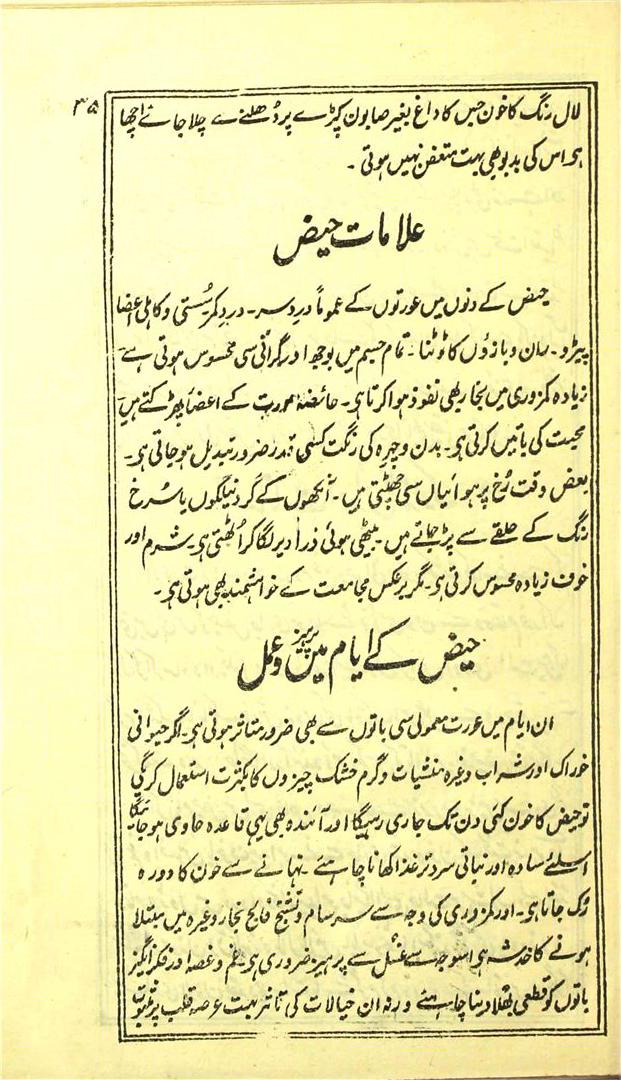 ۳۵
لال رنگ کا خون جس کا داغ بغیر صابون کپڑے پر دُھلنے سے چلا جائے اچھا
ہی اس کی بدبو بھی بہت متعفن نہیں ہوتی ۔
علامات حیض
حیض کے دنوں میں عورتوں کے عموماً درد سر ۔ درد کمر سُستی و کاہلی اعضا
پیڑو ۔ ران و بازوں کا ٹوٹنا ۔ تمام جسم میں بوجھ اور گرانی سی محسوس ہوتی ہے
زیادہ کمزوری میں بخار بھی نفوذ ہوا کرتا ہی ۔ حائضہ عورت کے اعضأ پھڑکتے ہیں
محبت کی باتیں کرتی ہی ۔ بدن و چہرہ کی رنگت کسی قدر ضرور تبدیل ہو جاتی ہی ۔
بعض وقت رُخ پر ہوائیاں سی چھٹتی ہیں ۔ آنکھوں کے گرد نیلگوں یا سُرخ
رنگ کے حلقے سے پڑ جاتے ہیں ۔ بیٹھی ہوئی ذرا دیر لگا کر اُٹھتی ہی ۔ شرم اور
خوف زیادہ محسوس کرتی ہی ۔ مگر برعکس مجامعت کے خواہشمند بھی ہوتی ہی ۔
حیض کے ایام میں پرہیز و عمل
ان ایام میں عورت معمولی سی باتوں سے بھی ضرور متاثر ہوتی ہی ۔ اگر حیوانی
خوراک اور شراب وغیرہ منشیات و گرم خشک چیزوں کا بکثرت استعمال کریگی
تو حیض کا خون کئی دن تک جاری رہیگا اور آئندہ بھی یہی قاعدہ حاوی ہو جائیگا
اسلئے سادہ اور نباتی سرد تر غذا کھانا چاہئے ۔ نہانے سے خون کا دورہ
رُک جاتا ہی ۔ اور کمزوری کی وجہ سے سرسام و تشنج فالج بخار وغیرہ میں مبتلا
ہونے کا خدشہ ہی اسوجہ سے غسل سے پرہیز ضروری ہی ۔ غم و غصہ اور فکر انگیز
باتوں کو قطعی بھلا دینا چاہئے ورنہ ان خیالات کی تاثر بہت عرصہ قلب پر